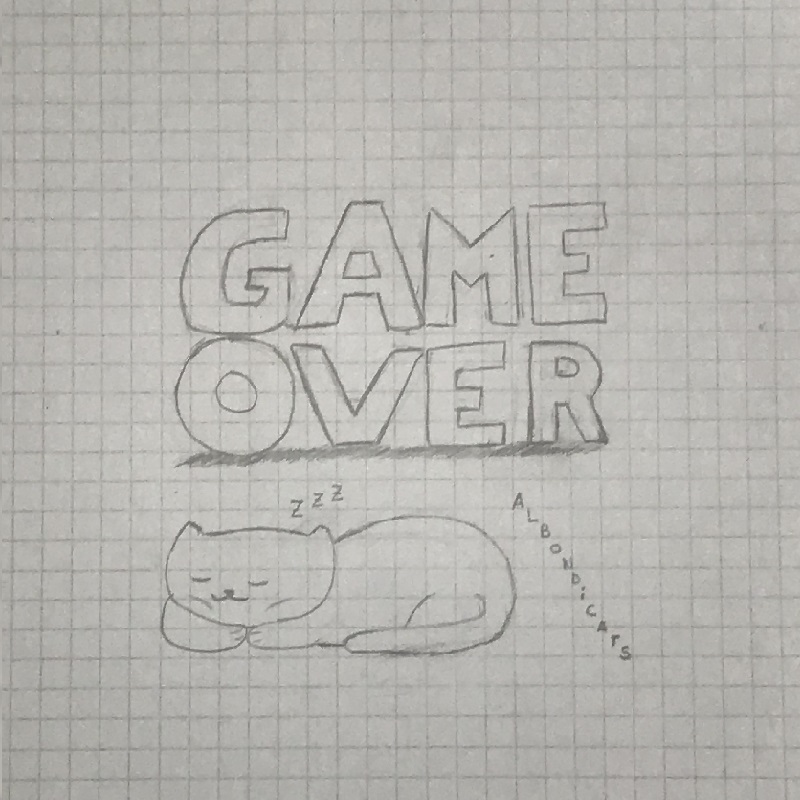 GAME
OVER
z z z
ALBONDiCATS